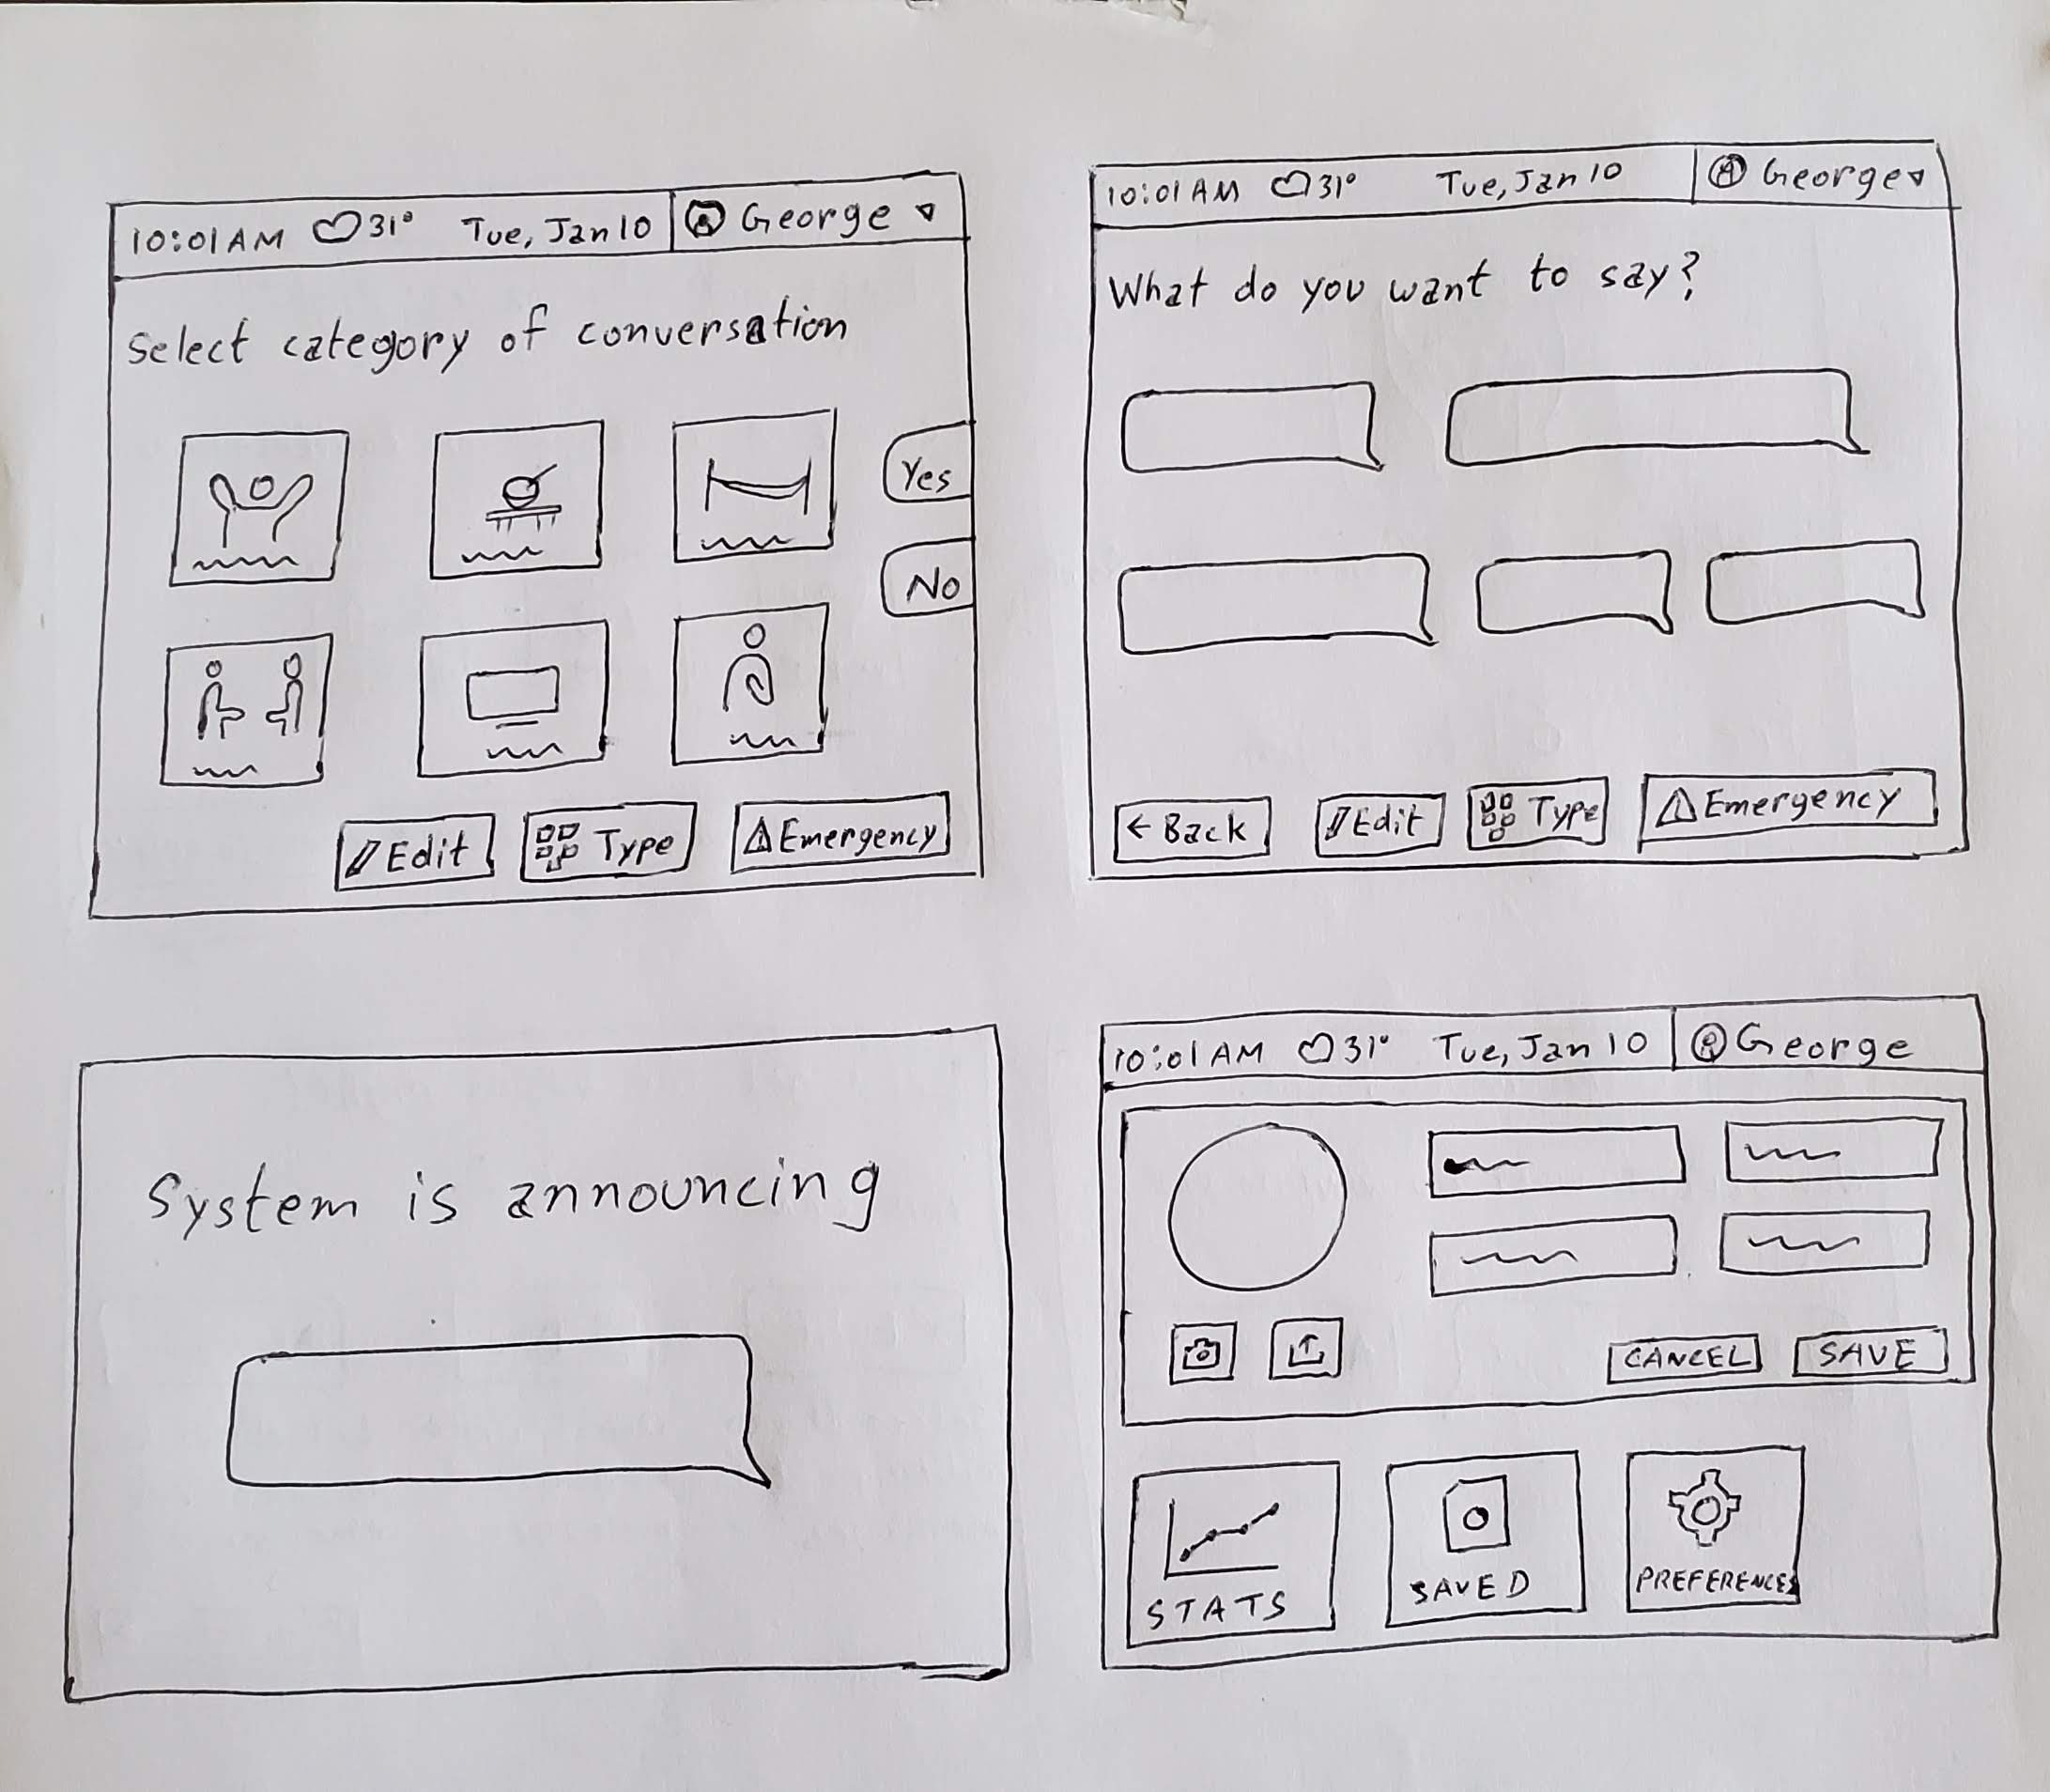 10:01 AM 31° Tue, Jan 10 George
Select category of conversation
Yes
No
Edit Type Emergency
10:01 AM 31° Tue, Jan 10 George
What do you want to say?
← Back Edit Type Emergency
System is announcing
10:01 AM 31° Tue, Jan 10 George
CANCEL SAVE
STATS SAVED PREFERENCES